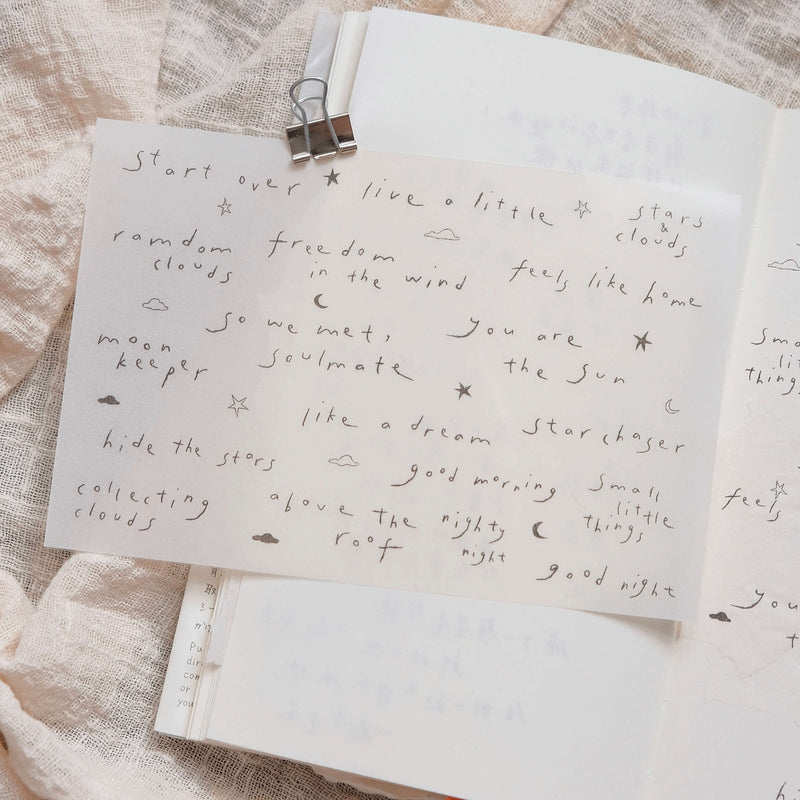 start over
live a little
stars
&
clouds
ramdom
clouds
freedom
in the wind
feels like home
so we met,
soulmate
you are
the sun
moon
keeper
like a dream
star chaser
hide the stars
good morning
small
little
things
collecting
clouds
above the
roof
nighty
night
good night
things
feels
you
or
you